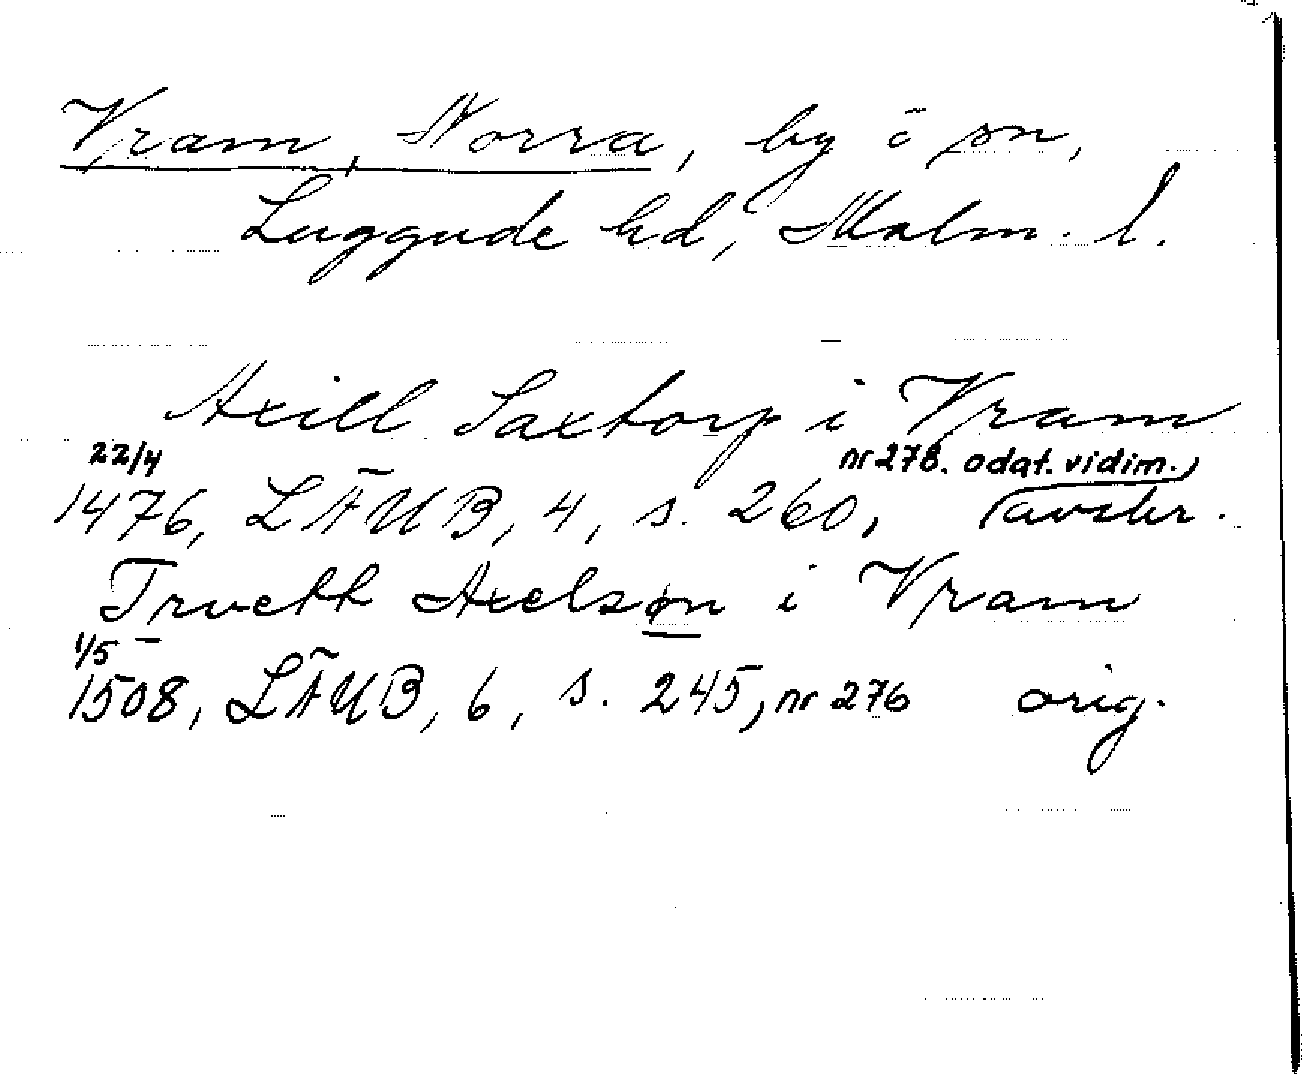 Vram, Norra, by o sn,
Luggude hd, Malm. l.
Axill Saxtorp i Vram
22/4 nr 278. odat. vidim.
1476, LÄUB, 4, s. 260, avskr.
Truethh Axelsøn i Vram
1/5
1508, LÄUB, 6, s. 245, nr 276 orig.